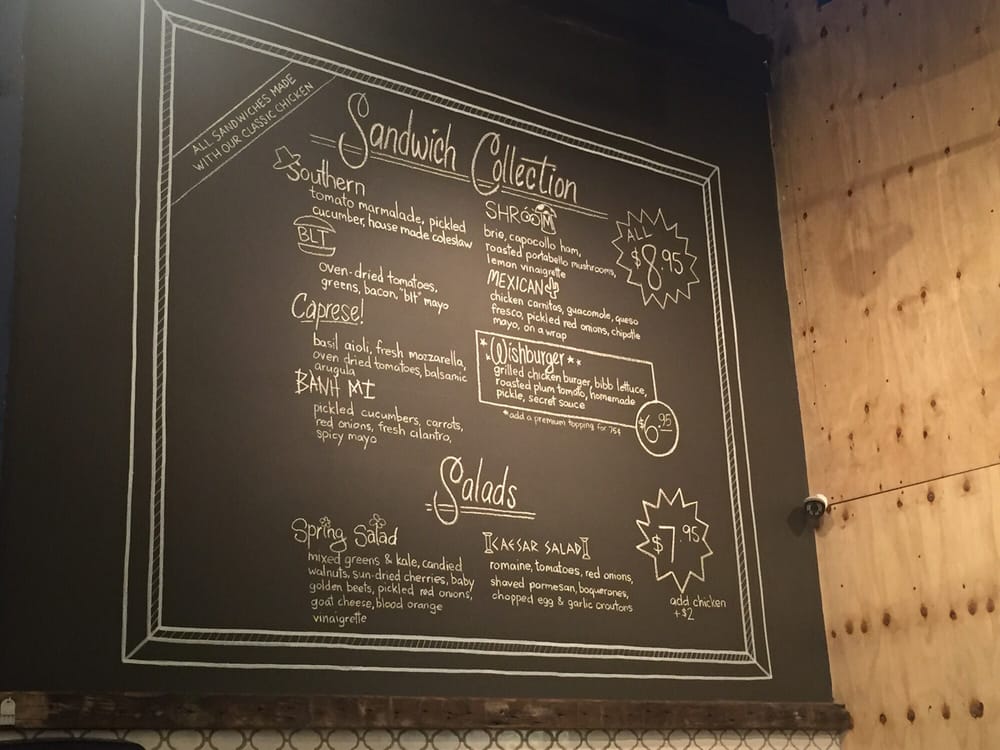 ALL SANDWICHES MADE
WITH OUR CLASSIC CHICKEN
Sandwich Collection
Southern
tomato marmalade, pickled
cucumber, house made coleslaw
BLT
oven-dried tomatoes,
greens, bacon, "blt" mayo
Caprese!
basil aioli, fresh mozzarella,
oven dried tomatoes, balsamic
arugula
BANH MI
pickled cucumbers, carrots,
red onions, fresh cilantro,
spicy mayo
SHROOM
brie, capocollo ham,
roasted portabello mushrooms,
lemon vinaigrette
MEXICAN
chicken carnitas, guacomole, queso
fresco, pickled red onions, chipotle
mayo, on a wrap
ALL
$8.95
Wishburger
grilled chicken burger, bibb lettuce,
roasted plum tomato, homemade
pickle, secret sauce
$6.95
*add a premium topping for 75¢
Salads
Spring Salad
mixed greens & kale, candied
walnuts, sun-dried cherries, baby
golden beets, pickled red onions,
goat cheese, blood orange
vinaigrette
CAESAR SALAD
romaine, tomatoes, red onions,
shaved parmesan, boquerones,
chopped egg & garlic croutons
$7.95
add chicken
+$2